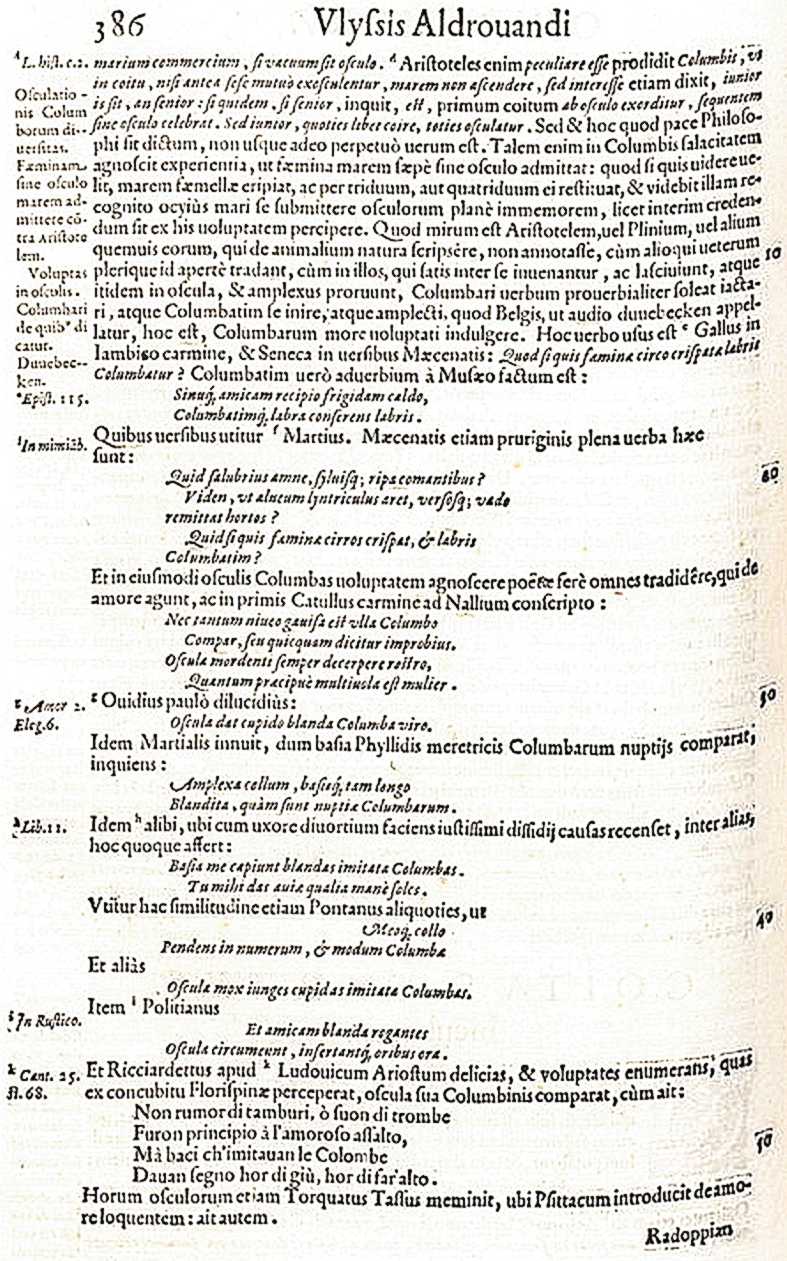 386 Vlyſsis Aldrouandi
marium commercium, ſi vacuum ſit oſculo. ᵈ Ariſtoteles enim peculiare eſſe prodidit Columbis, vt
in coitu, niſi antea ſeſe mutuò exeſculentur, marem non aſcendere, ſed intereſſe etiam dixit, iunior
is ſit, an ſenior: ſiquidem. ſi ſenior, inquit, eſt, primum coitum ab oſculo exorditur, ſequentem
ſine oſculo celebrat. Sed iunior, quoties libet coire, toties oſculatur. Sed & hoc quod pace Philoſo-
phi ſit dictum, non uſque adeo perpetuò uerum eſt. Talem enim in Columbis ſalacitatem
agnoſcit experientia, ut fæmina marem ſæpè ſine oſculo admittat: quod ſi quis uidere ue-
lit, marem fæmellæ eripiat, ac per triduum, aut quatriduum ei reſtituat, & videbit illam re-
cognito ocyiùs mari ſe ſubmittere oſculorum planè immemorem, licet interim creden-
dum ſit ex his uoluptatem percipere. Quod mirum eſt Ariſtotelem, uel Plinium, uel alium
quemuis eorum, qui de animalium natura ſcripsêre, non annotaſſe, cùm alioqui ueterum
plerique id apertè tradant, cùm in illos, qui ſatis inter ſe inuenantur, ac laſciuiunt, atque
itidem in oſcula, & amplexus proruunt, Columbari uerbum prouerbialiter ſoleat iacta-
ri, atque Columbatim ſe inire, atque amplecti, quod Belgis, ut audio duuebecken appel-
latur, hoc eſt, Columbarum more uoluptati indulgere. Hoc uerbo uſus eſt ᵉ Gallus in
Iambico carmine, & Seneca in uerſibus Mæcenatis: Quod ſi quis fæmina circo criſpata labris
Columbatur? Columbatim uerò aduerbium à Muſæo factum eſt:
Sinuq́; amicam recipio frigidam caldo,
Columbatimq́; labra conſerens labris.
Quibus uerſibus utitur ᶠ Martius. Mæcenatis etiam pruriginis plena uerba hæc
ſunt:
Quid ſalubrius amne, ſyluisq́; ripa comantibus?
Viden, vt alueum lyntriculus aret, verſosq́; vado
remittat hortos?
Quid ſi quis fæmina cirros criſpat, & labris
Columbatim?
Et in eiuſmodi oſculis Columbas uoluptatem agnoſcere poëtæ ferè omnes tradidêre, qui de
amore agunt, ac in primis Catullus carmine ad Nallium conſcripto:
Nec tantum niueo gauiſa eſt vlla Columbo
Compar, ſeu quicquam dicitur improbius.
Oſcula mordenti ſemper decerpere roſtro,
Quantum præcipuè multiuola eſt mulier.
ᵍ Ouidius paulò dilucidiùs:
Oſcula dat cupido blanda Columba viro.
Idem Martialis innuit, dum baſia Phyllidis meretricis Columbarum nuptijs comparat,
inquiens:
Amplexa collum, baſiuq́; tam longo
Blandita, quàm ſunt nuptiæ Columbarum.
Idem ʰ alibi, ubi cum uxore diuortium faciens iuſtiſſimi diſſidij cauſas recenſet, inter alias,
hoc quoque affert:
Baſia me capiunt blandas imitata Columbas.
Tu mihi das auiæ qualia manè ſoles.
Vtitur hac ſimilitudine etiam Pontanus aliquoties, ut
Meoq́; collo
Pendens in numerum, & modum Columbæ
Et aliàs
Oſcula mox iunges cupidas imitata Columbas.
Item ⁱ Politianus
Et amicam blanda rogantes
Oſcula circumeunt, inſertantq́; oribus ora.
Et Ricciardettus apud ᵏ Ludouicum Arioſtum delicias, & voluptates enumerans, quas
ex concubitu Floriſpinæ perceperat, oſcula ſua Columbinis comparat, cùm ait:
Non rumor di tamburi, ò ſuon di trombe
Furon principio à l'amoroſo aſſalto,
Mà baci ch'imitauan le Colombe
Dauan ſegno hor di giù, hor di far'alto.
Horum oſculorum etiam Torquatus Taſſus meminit, ubi Pſittacum introducit de amo-
re loquentem: ait autem.
Radoppian
ᵈ L. hiſt. c.2.
Oſculatio-
nis Colum
borum di-
uerſitas.
Fæminam
ſine oſculo
marem ad-
mittere cõ-
tra Ariſtote
lem.
Voluptas
in oſculis.
Columbari
de quibꝰ di
catur.
Duuebec-
ken.
ᵉ Epiſt. 115.
ᶠ In mimiāb.
ᵍ Amor 2.
Eleg. 6.
ʰ Lib. 11.
ⁱ In Ruſtico.
ᵏ Cant. 25.
ſt. 68.
10
20
30
40
50